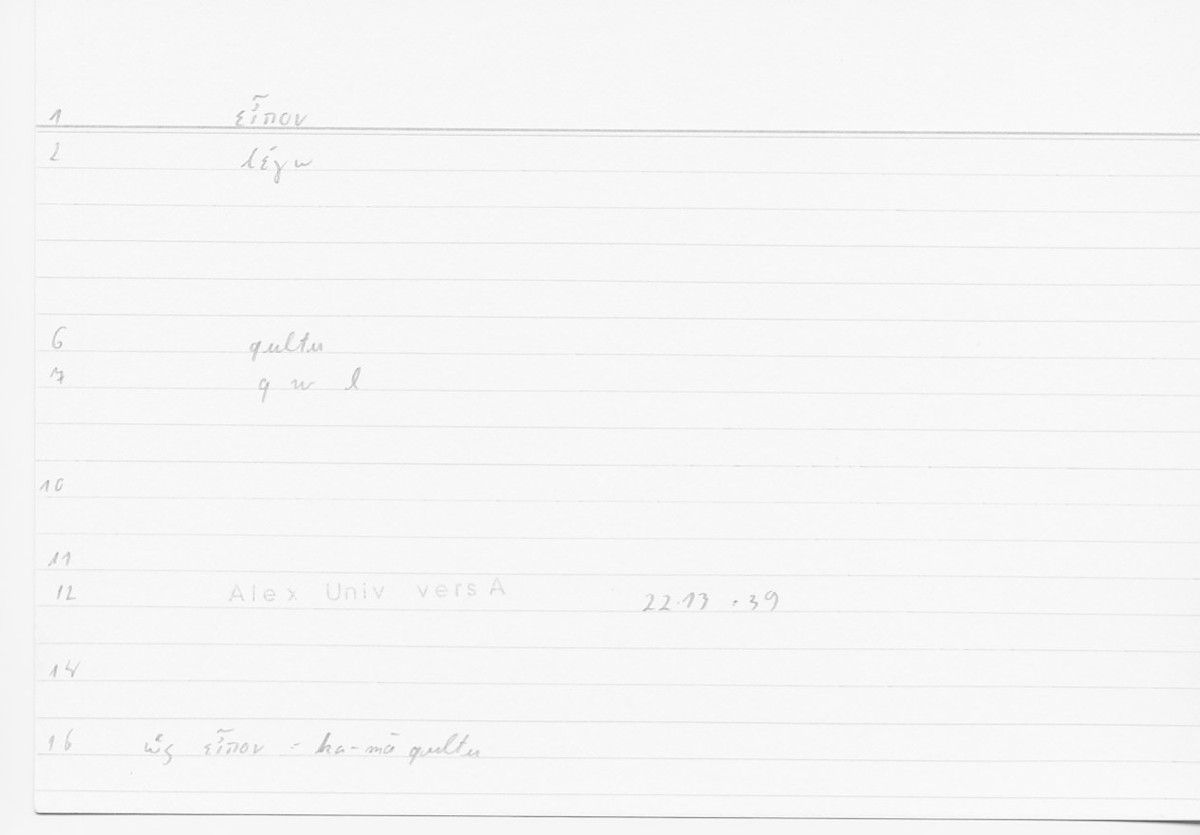 1 εἶπον
2 λέγω
6 qultu
7 q w l
10
11
12 Alex Univ vers A 22.13 .39
14
16 ὡς εἶπον = ka-mā qultu